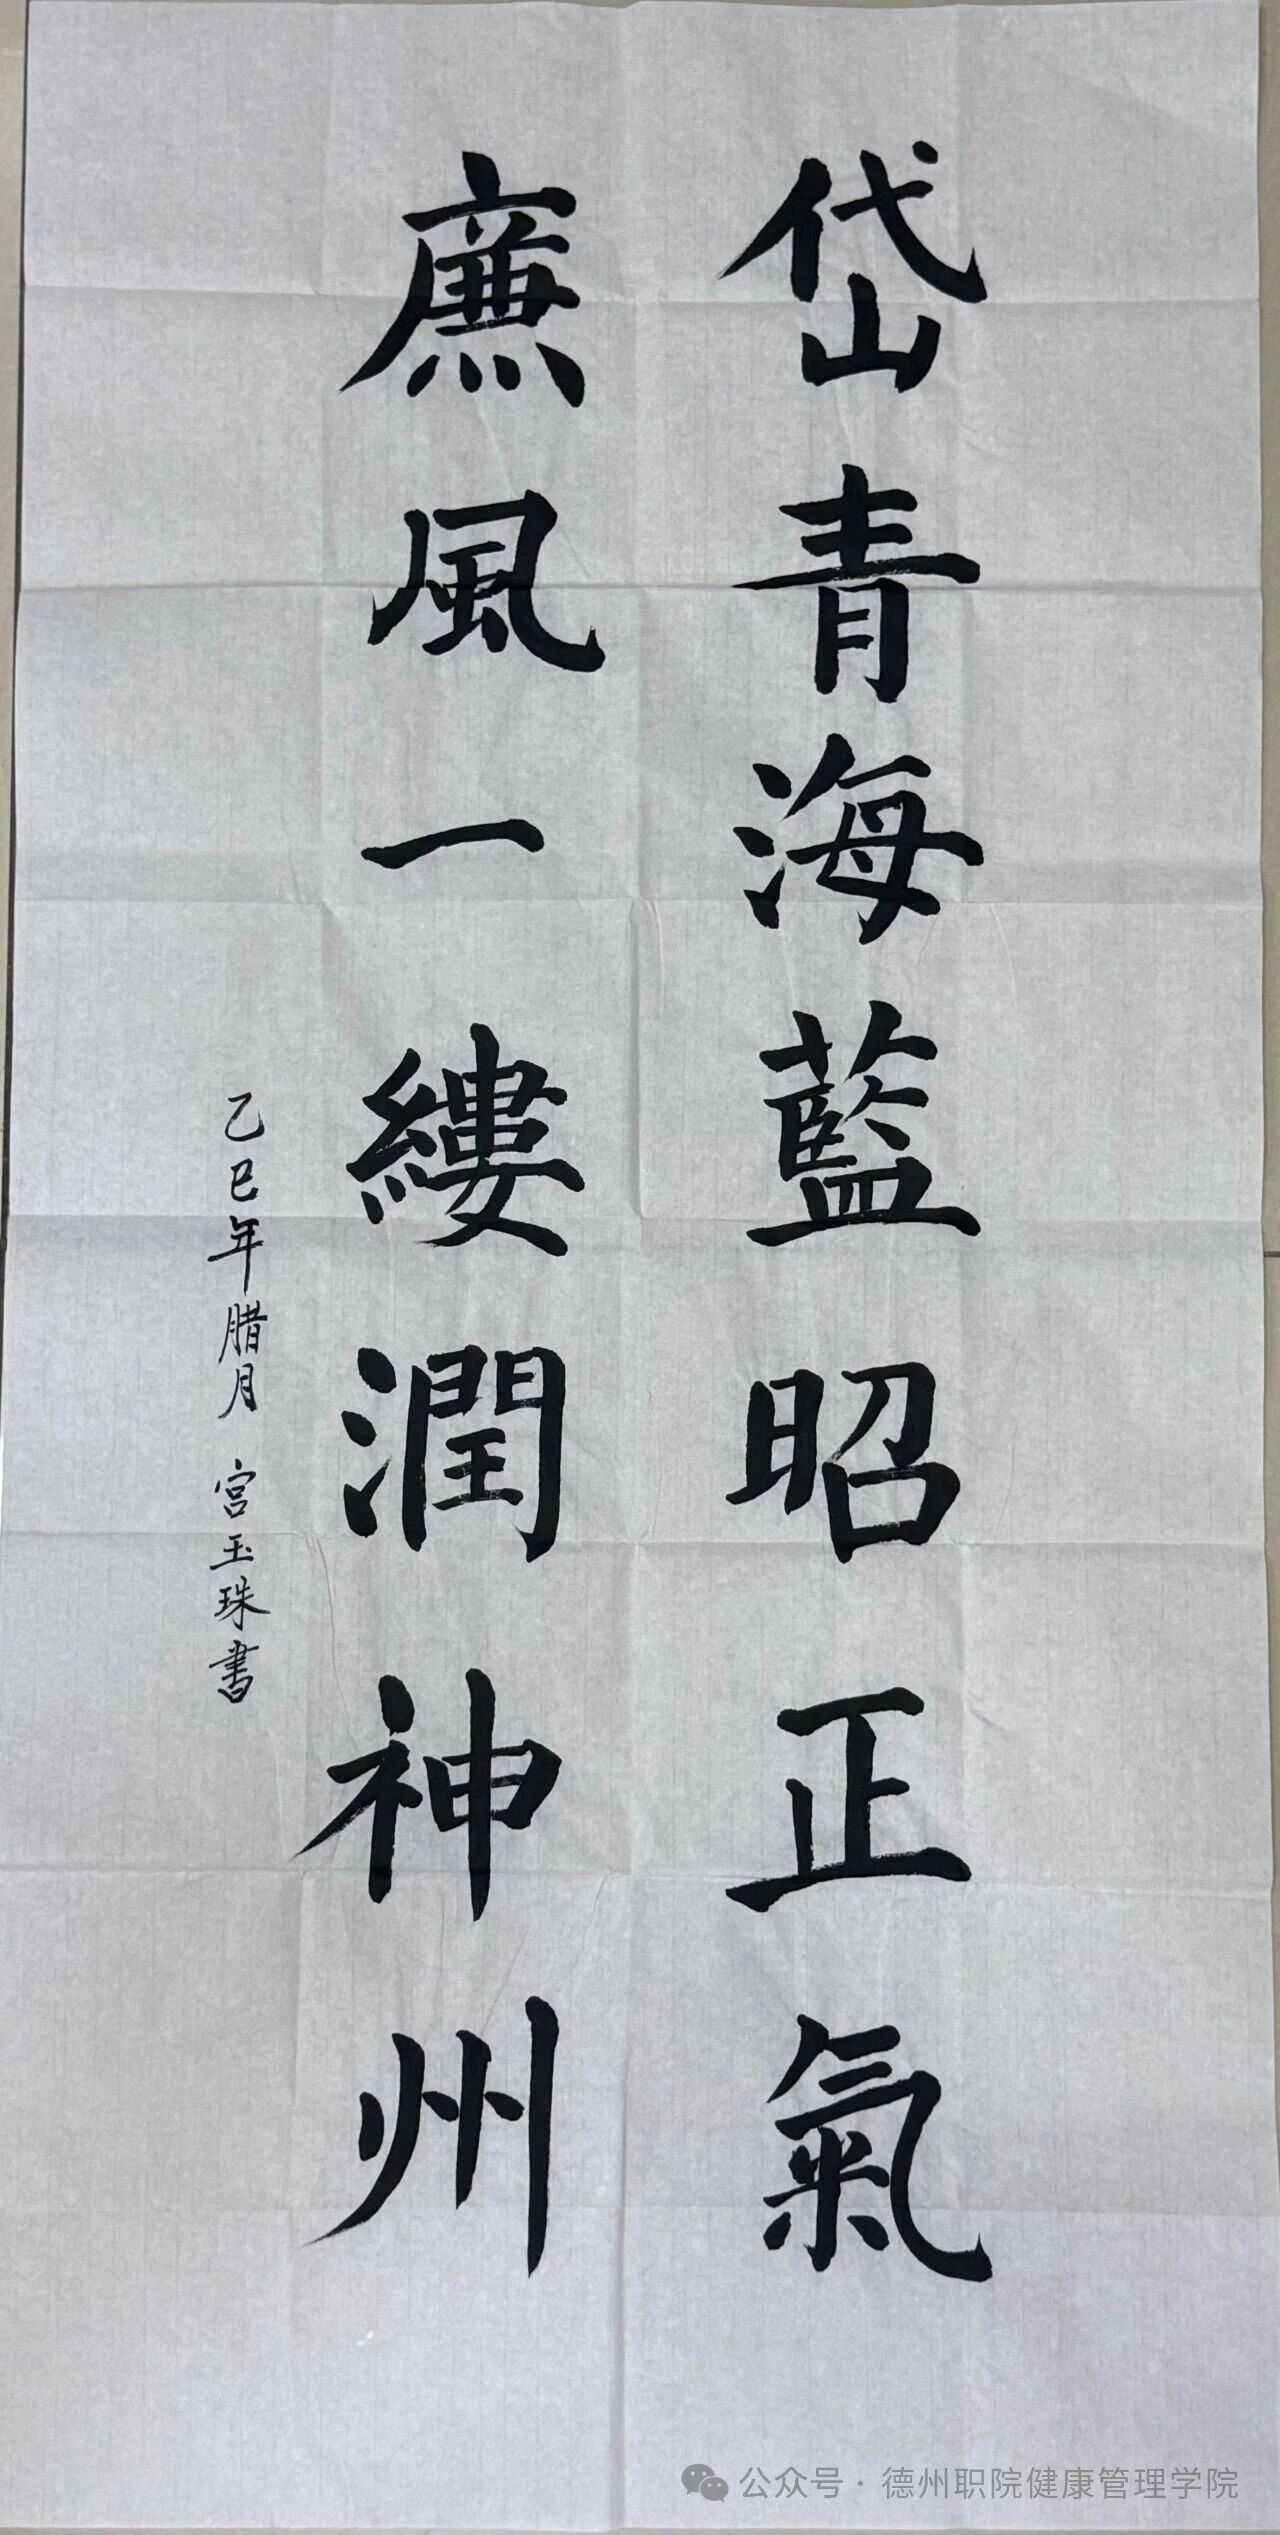 岱青海藍昭正氣
廉風一縷潤神州
乙巳年腊月 宫玉珠書
公众号·德州职院健康管理学院